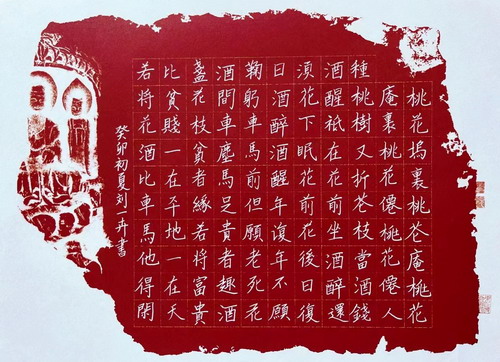 桃花塢裏桃苍庵桃花
庵裏桃花僊桃花僊人
種桃樹又折苍枝當酒錢
酒醒祇在花前坐酒醉還
湏花下眠花前花後日復
日酒醉酒醒年復年不願
鞠躬車馬前但願老死花
酒間車塵馬足貴者趣酒
盞花枝貧者緣若将富貴
比貧賤一在平地一在天
若将花酒比車馬他得閑
癸卯初夏刘一升書